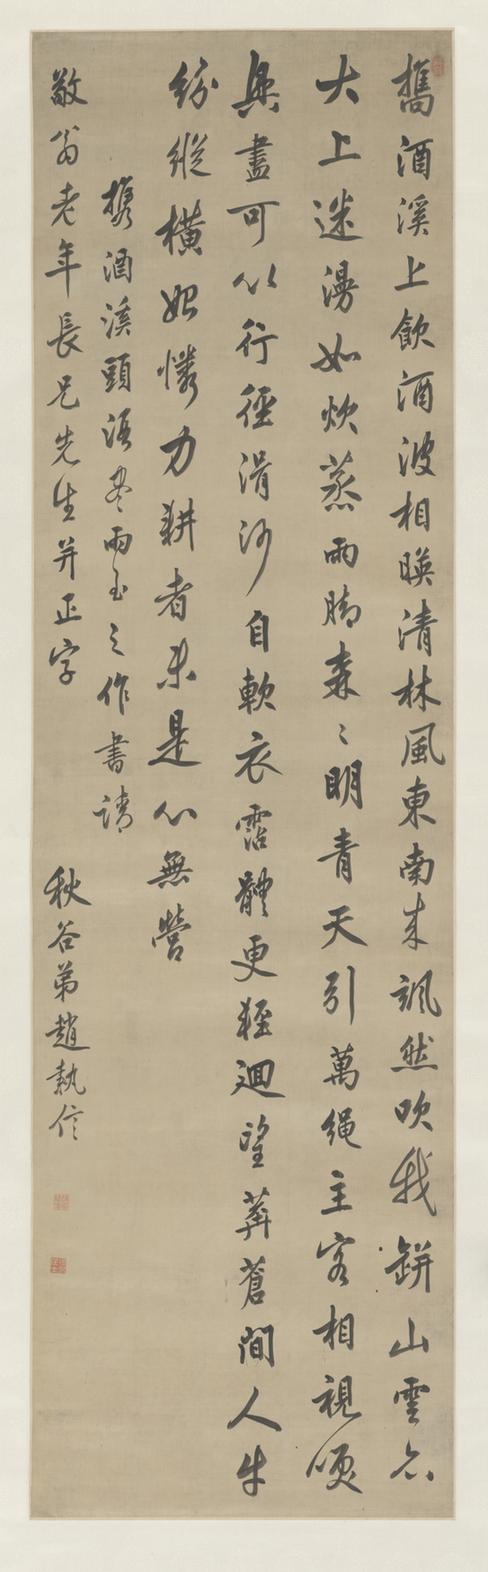 攜酒溪上飲酒波相暎清林風東南来颯然吹我缾山雲亦
大上迷漫如炊蒸雨腳森〻明青天引萬繩主客相視頃
興盡可以行徑滑沙自軟衣霑體更輕迴望莽蒼間人牛
紛縱橫始憐力耕者未是心無營
携酒溪頭酒尽雨至之作書請
敬翁老年長兄先生并正字
秋谷弟趙執信